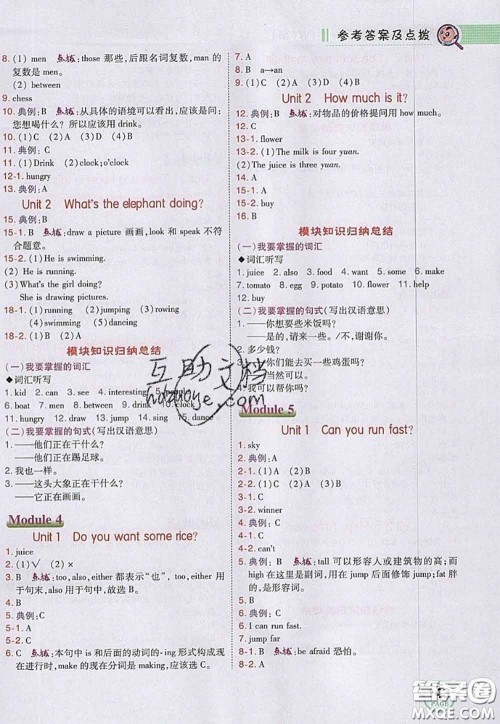 参考答案及点拨
8. (1) men 点拨：those 那些，后跟名词复数，man 的
复数是 men。
(2) between
9. chess
10. 典例：B 点拨：从具体的语境可以看出，应该是问：
您想喝什么？ 所以应该用 drink。
10-1. (1)C (2)A (3)D (4)B
11. 典例：C
11-1. (1)Drink (2)clock; o'clock
12-1. hungry
13. 典例：A
Unit 2 What's the elephant doing?
15. 典例：B
15-1. B 点拨：draw a picture 画画，look 和 speak 不符
合题意。
15-2. (1)He is swimming.
(2)He is running.
(3)What's the girl doing?
She is drawing pictures.
18-1. (1)running (2)jumping (3)rowing
(4)dancing (5)sitting
18-2. A
模块知识归纳总结
(一)我要掌握的词汇
◆词汇听写
1. kid 2. can 3. see 4. interesting
6. boat 7. men 8. between 9. drink 10. clock
11. hungry 12. draw 13. jump 14. sing 15. dance
(二)我要掌握的句式（写出汉语意思）
1. ——他们正在干什么？
——他们正在踢足球。
2. ——这头大象正在干什么？
——它正在画画。
Module 4
Unit 1 Do you want some rice?
1. juice
2. (1)√ (2)×
3. 典例：B 点拨：too, also, either 都表示“也”，too, either 用
于句末，also 用于句中。too, also 用于肯定句，either 用
于否定句，故选 B。
4. A
5. 典例：C
5-1. A
5-2. C
6. C 点拨：本句中 is 和后面的动词的-ing 形式构成现
在进行时，make 的现在分词是 making，应该选 C。
7. A
8. B a→an
9. (1)C (2)A (3)B
Unit 2 How much is it?
11. 典例：B 点拨：对物品的价格提问用 how much。
12. C
13-1. flower
13-2. (1)The milk is four yuan.
(2)The juice is three yuan.
14. A
15-1. B
15-2. buy
16. B
模块知识归纳总结
(一)我要掌握的词汇
◆词汇听写
1. juice 2. also 3. want 4. much 5. make
6. tomato 7. egg 8. potato 9. buy 10. help
(二)我要掌握的句式（写出汉语意思）
1. ——你想要些米饭吗？
2. 多少钱？
你们能去买一些鸡蛋吗？
当然可以。
4. 我可以帮你吗？
Module 5
Unit 1 Can you run fast?
1. sky
2. 典例：A
2-1. (1)A (2)C
2-2. (1)B (2)A (3)C
3. winner
4. 典例：C
4-1. B
4-2. can't
5. 典例：B 点拨：tall 可以形容人或建筑物的高；而
high 在这里是副词，用在动词 jump 的后面；fat 胖
的，是形容词。
5-1. B
5-2. A
6. 典例：B
6-1. I can run fast.
7. jump far
8. B 点拨：be afraid 恐怕。
互助文档
hdzuoye.com
答案圈
MXQE.COM